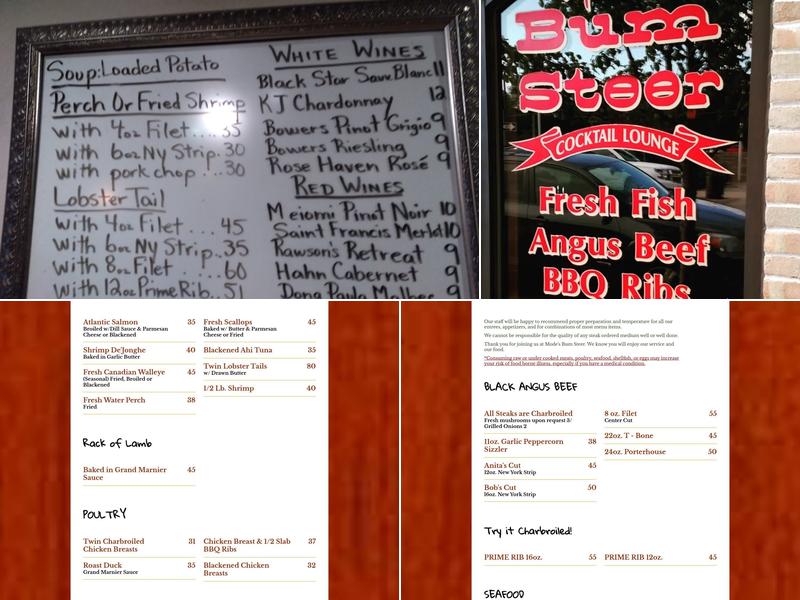 Soup: Loaded Potato
Perch Or Fried Shrimp
with 4oz Filet....35
with 6oz Ny Strip.30
with pork chop...30
Lobster Tail
with 4oz Filet....45
with 6oz Ny Strip..35
with 8oz Filet....60
with 12oz Prime Rib..51
WHITE WINES
Black Star Sauv. Blanc 11
KJ Chardonnay 12
Bowers Pinot Grigio 9
Bowers Riesling 9
Rose Haven Rosé 9
RED WINES
Meiomi Pinot Noir 10
Saint Francis Merlot 10
Rawson's Retreat 9
Hahn Cabernet 9
Dona Paula Malbec 9
Bum
Steer
COCKTAIL LOUNGE
Fresh Fish
Angus Beef
BBQ Ribs
Atlantic Salmon 35
Broiled w/Dill Sauce & Parmesan
Cheese or Blackened
Shrimp De'Jonghe 40
Baked in Garlic Butter
Fresh Canadian Walleye 45
(Seasonal) Fried, Broiled or
Blackened
Fresh Water Perch 38
Fried
Fresh Scallops 45
Baked w/ Butter & Parmesan
Cheese or Fried
Blackened Ahi Tuna 35
Twin Lobster Tails 80
w/ Drawn Butter
1/2 Lb. Shrimp 40
Rack of Lamb
Baked in Grand Marnier 45
Sauce
POULTRY
Twin Charbroiled 31
Chicken Breasts
Roast Duck 35
Grand Marnier Sauce
Chicken Breast & 1/2 Slab 37
BBQ Ribs
Blackened Chicken 32
Breasts
Our staff will be happy to recommend proper preparation and temperature for all our
entrees, appetizers, and for combinations of most menu items.
We cannot be responsible for the quality of any steak ordered medium well or well done.
Thank you for joining us at Mode's Bum Steer. We know you will enjoy our service and
our food.
*Consuming raw or under cooked meats, poultry, seafood, shellfish, or eggs may increase
your risk of food borne illness, especially if you have a medical condition.
BLACK ANGUS BEEF
All Steaks are Charbroiled
Fresh mushrooms upon request 3/
Grilled Onions 2
11oz. Garlic Peppercorn 38
Sizzler
Anita's Cut 45
12oz. New York Strip
Bob's Cut 50
16oz. New York Strip
8 oz. Filet 55
Center Cut
22oz. T - Bone 45
24oz. Porterhouse 50
Try it Charbroiled!
PRIME RIB 16oz. 55
PRIME RIB 12oz. 45
SEAFOOD